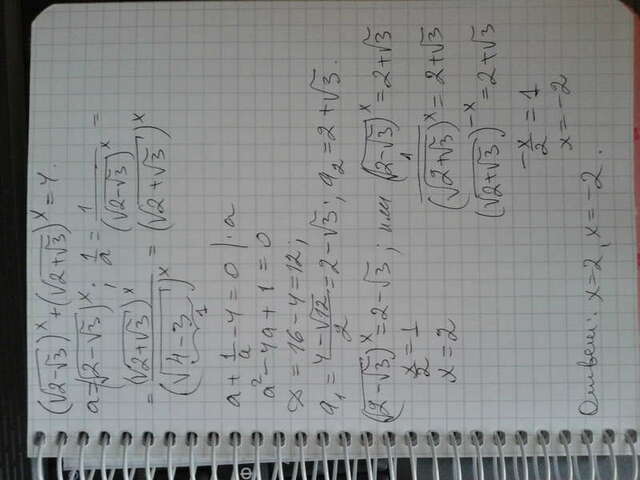 (√(2-√3))^x + (√(2+√3))^x = 4.
a = (√(2-√3))^x ; 1/a = 1/(√(2-√3))^x =
= (√(2+√3))^x / (√(4-3))^x = (√(2+√3))^x
1
a + 1/a - 4 = 0 | · a
a² - 4a + 1 = 0
D = 16 - 4 = 12;
a₁ = (4-√12)/2 = 2-√3; a₂ = 2+√3.
(√(2-√3))^x = 2-√3; или (√(2-√3))^x = 2+√3
x/2 = 1
x = 2
1/(√(2+√3))^x = 2+√3
(√(2+√3))^-x = 2+√3
-x/2 = 1
x = -2
Ответ: x=2, x=-2.